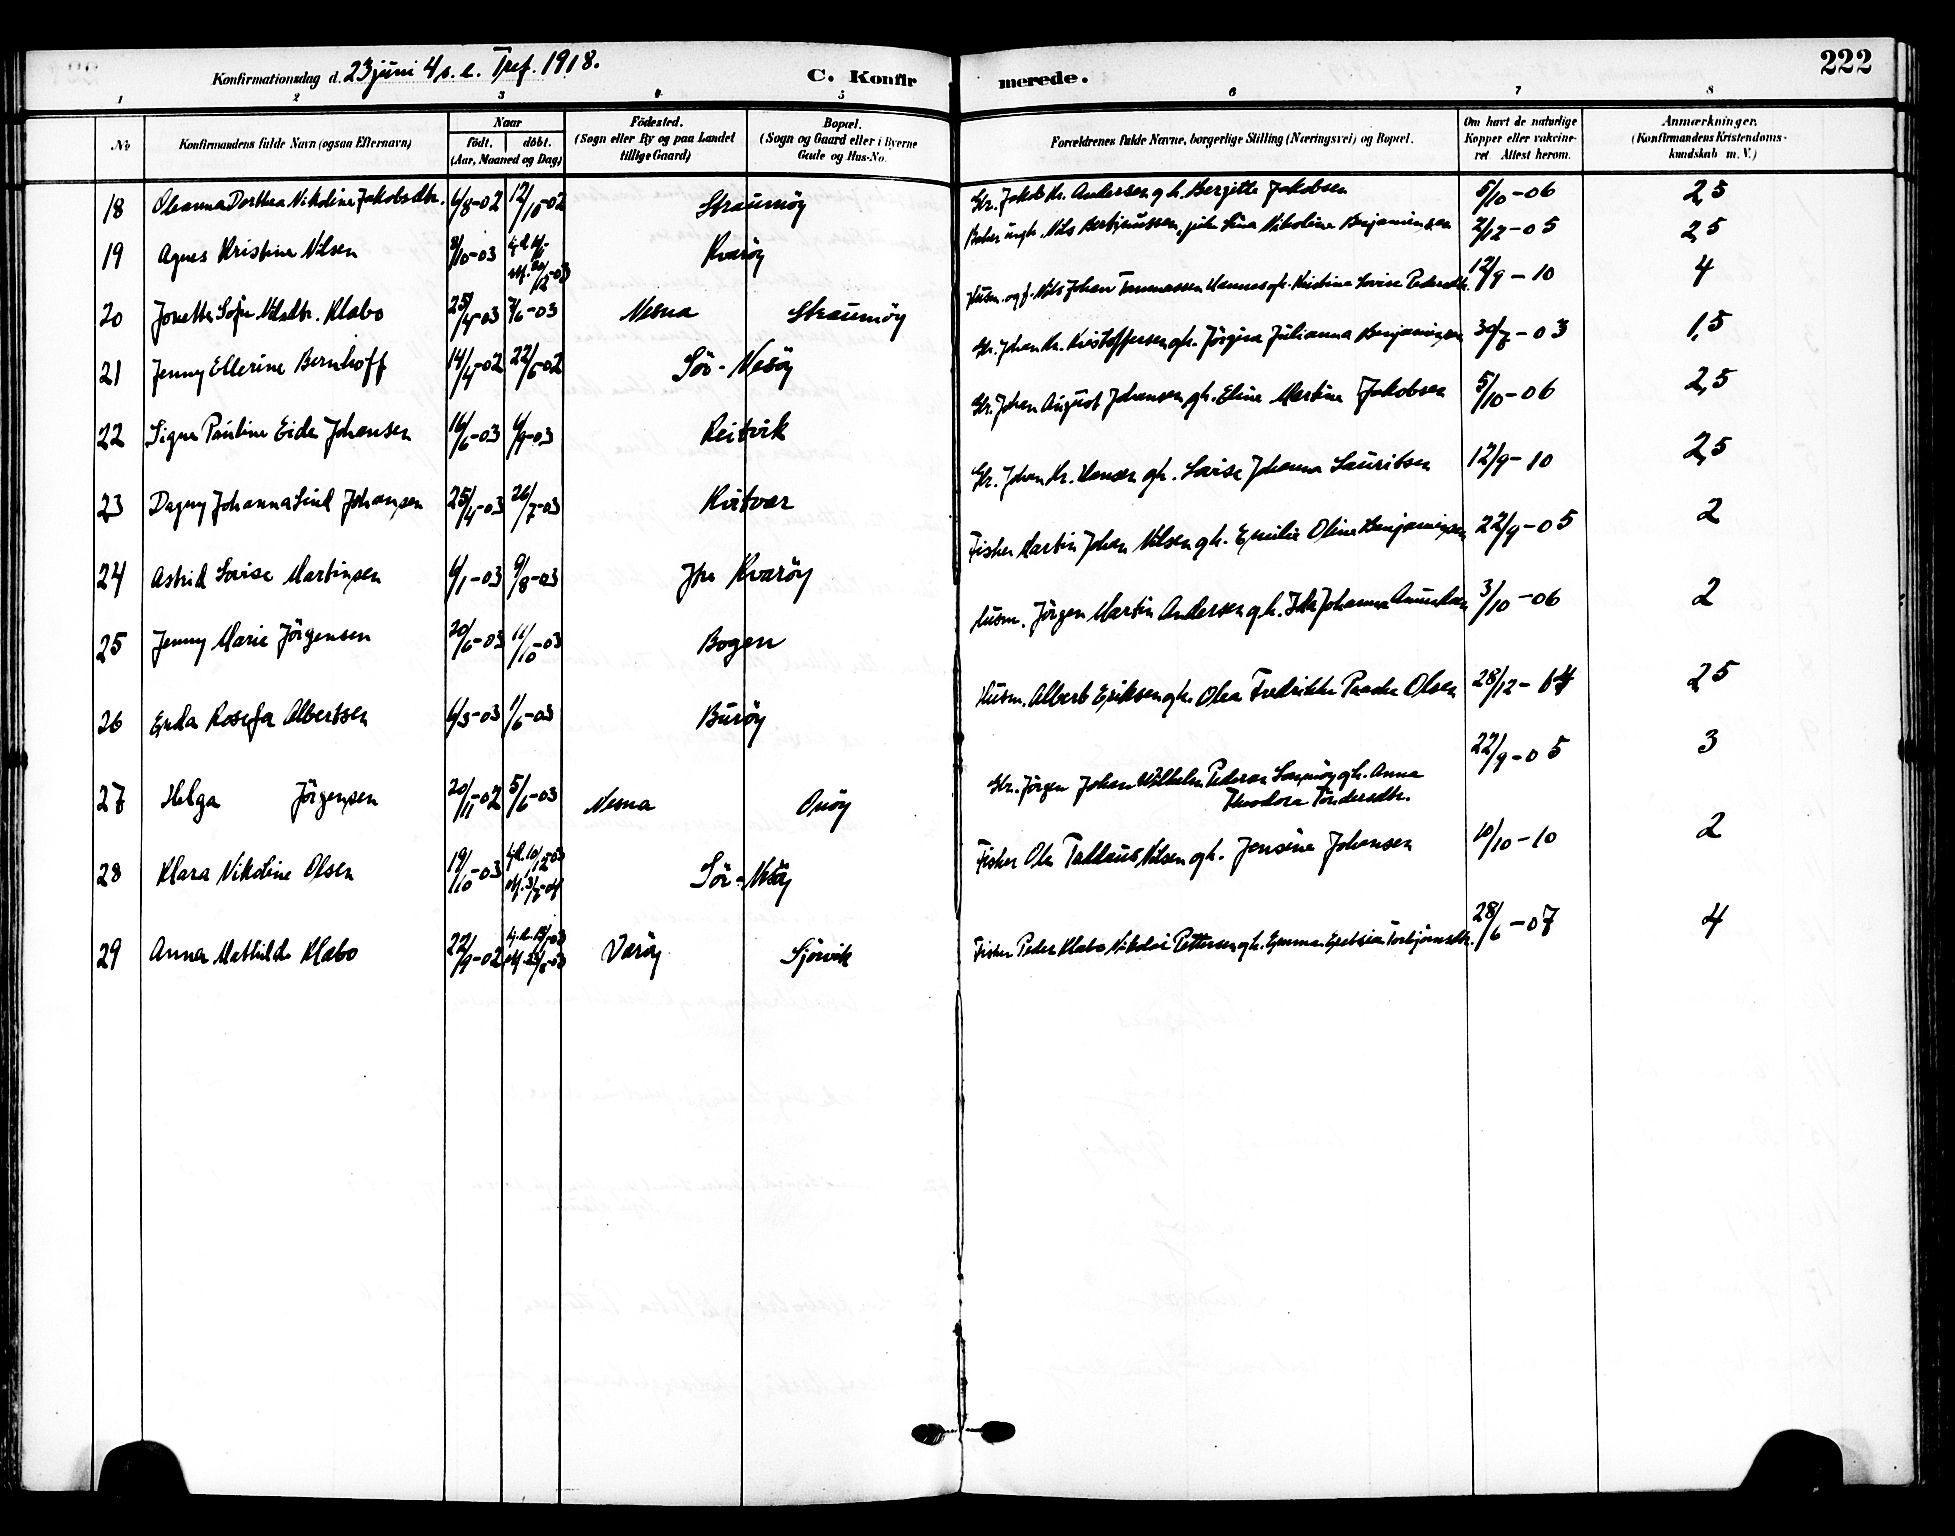 Konfirmationsdag d. 23 juni 4 s. e. Tref. 1918.
C. Konfir
merede.
222
1 2 3 4 5 6 7 8
No
Konfirmandens fulde Navn (ogsaa Efternavn)
Naar
födt. döbt.
(Aar, Maaned og Dag)
Födested.
(Sogn eller By og paa Landet
tillige Gaard)
Bopæl.
(Sogn og Gaard eller i Byerne
Gade og Hus-No.
Forældrenes fulde Navne, borgerlige Stilling (Næringsvei) og Bopæl.
Om havt de naturlige
Kopper eller vakcine-
ret Attest herom.
Anmærkninger.
(Konfirmandens Kristendoms-
kundskab m. V.)
18 Oleanna Dorthea Nikoline Jakobsdtr. 6/8-02 12/10-02 Straumöy Gr. Jakob Kr. Andersen gh. Bergitte Jakobsen 5/10-06 2,5
19 Agnes Kristine Nilsen 8/10-03 Kvaröy Nils Nikoline Benjaminsen 2/12-05 2,5
20 Jonette Sofie Nilsdtr. Klabo 25/4-03 7/6-03 Nesna Straumöy Husm. og f. Nils Johan Tommassen Hannes gh. Kristine Lovise Pedersdtr. 12/9-10 4
21 Jenny Ellerine Bernhoff 14/4-02 22/6-02 Sör-Nesöy Gr. Johan Kr. Kristoffersen gh. Jörgine Julianna Benjaminsen 30/7-03 1,5
22 Signe Pauline Eide Johansen 16/6-03 6/9-03 Reitvik Gr. Johan August Johansen gh. Eline Martine Jakobsen 5/10-06 2,5
23 Dagny Johanna Lind Johansen 25/4-03 26/7-03 Kvitvær Gr. Johan Kr. Hansen gh. Lovise Johanna Lauritsen 12/9-10 2,5
24 Astrid Lovise Martinsen 6/1-03 9/8-03 Ytre Kvaröy Fisker Martin Johan Nilsen gh. Emilie Oline Benjaminsen 22/9-05 2
25 Jenny Marie Jörgensen 20/6-03 11/10-03 Bogen Husm. Jörgen Martin Andersen gh. Ida Johanna Amundsen 3/10-06 2
26 Enda Rosefa Albertsen 6/3-03 1/6-03 Buröy Husm. Albert Eriksen gh. Olea Fredrikke Olsen 28/12- 2,5
27 Helga Jörgensen 20/11-02 5/6-03 Nesna Onöy Gr. Jörgen Johan Wilhelm Pedersen gh. Anna
Theodora Tondersdtr. 22/9-05 3
28 Klara Nikoline Olsen 19/10-03 Sör-Nesöy Fisker Ole Nilsen gh. Jensine Johansen 10/10-10 2
29 Anna Mathilde Klabo 22/9-02 Væröy Sjörvik Fisker Peder Klabo Nikolai Pettersen gh. Emma Torbjörnsdtr. 28/6-07 4